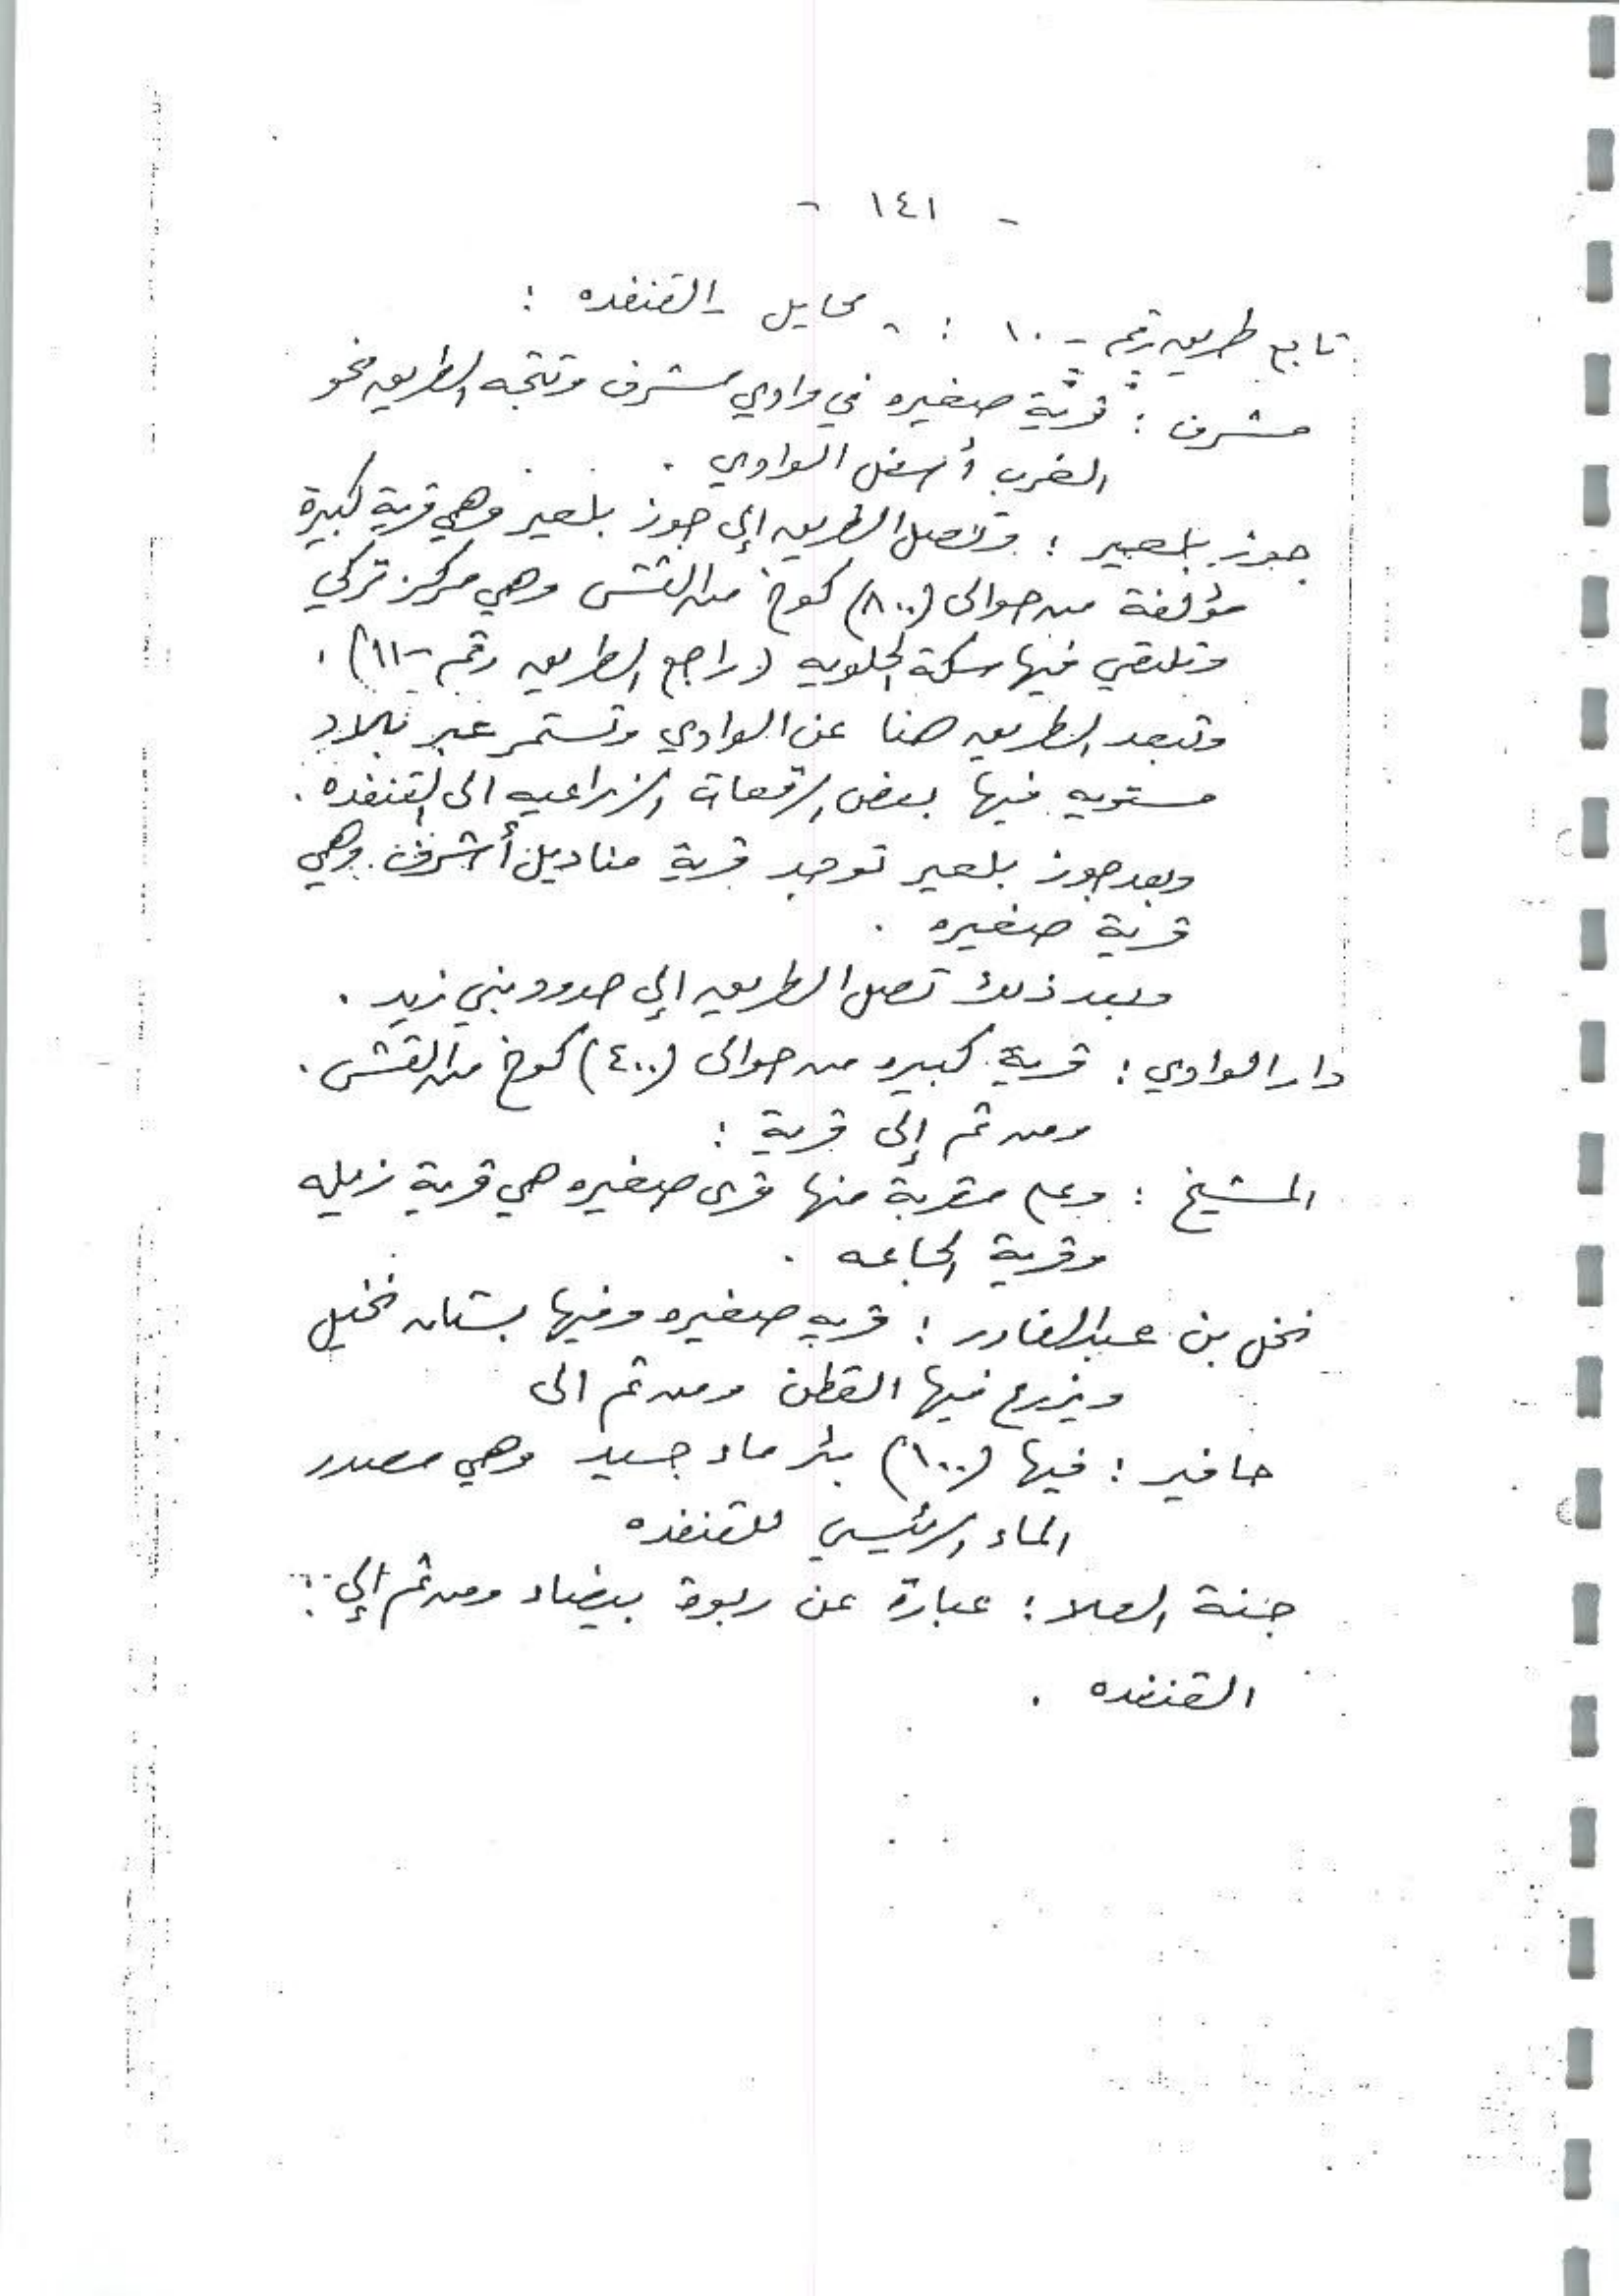 - ١٤١ -
تابع طريق رقم - ١٠ : - محايل - القنفده :
مشرف : قرية صغيره في وادي مشرف وتتجه الطريق نحو
الغرب أسفل الوادي .
جوز بلعير : وتصل الطريق إلى جوز بلعير وهي قرية كبيرة
مؤلفة من حوالى (٨٠٠) كوخ من القش وهي مركز تركي
وتلتقي فيها سكة الحلويه (راجع الطريق رقم - ١١) .
وتبعد الطريق هنا عن الوادي وتستمر عبر بلاد
مستويه فيها بعض الرقعات الزراعيه الى القنفده .
وبعد جوز بلعير توجد قرية مناديل أشرف وهي
قرية صغيره .
وبعد ذلك تصل الطريق إلى حدود بني زيد .
دار الوادي : قرية كبيره من حوالى (٤٠٠) كوخ من القش .
ومن ثم إلى قرية :
المشيخ : وعلى مقربة منها قرى صغيره هي قرية زيله
وقرية .
نخل بن عبدالقادر : قريه صغيره وفيها بستان نخيل
ويزرع فيها القطن ومن ثم الى
حافير : فيها (١٠٠) بئر ماء جيد وهي مصدر
الماء الرئيسي للقنفده
جنة العلا : عبارة عن ربوة بيضاء ومن ثم إلى :
القنفده .